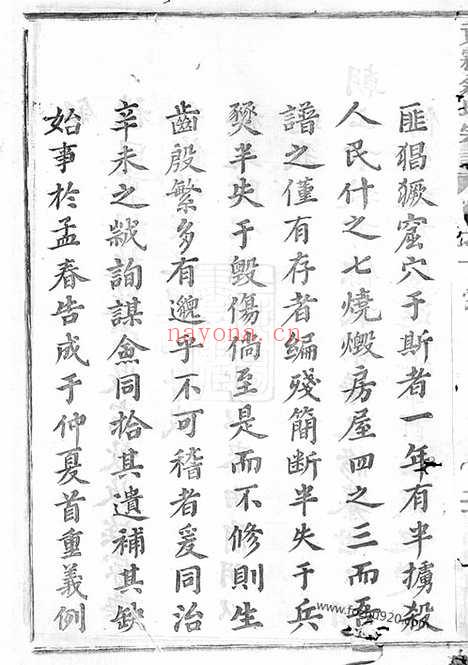 匪猖獗窟穴于斯者一年有半擄殺
人民什之七燒燬房屋四之三而吾
譜之僅有存者編殘簡斷半失于兵
燹半失于毀傷倘至是而不修則生
齒殷繁多有邈乎不可稽者爰同治
辛未之歲詢謀僉同拾其遺補其缺
始事於孟春告成于仲夏首重義例
nayona.cn